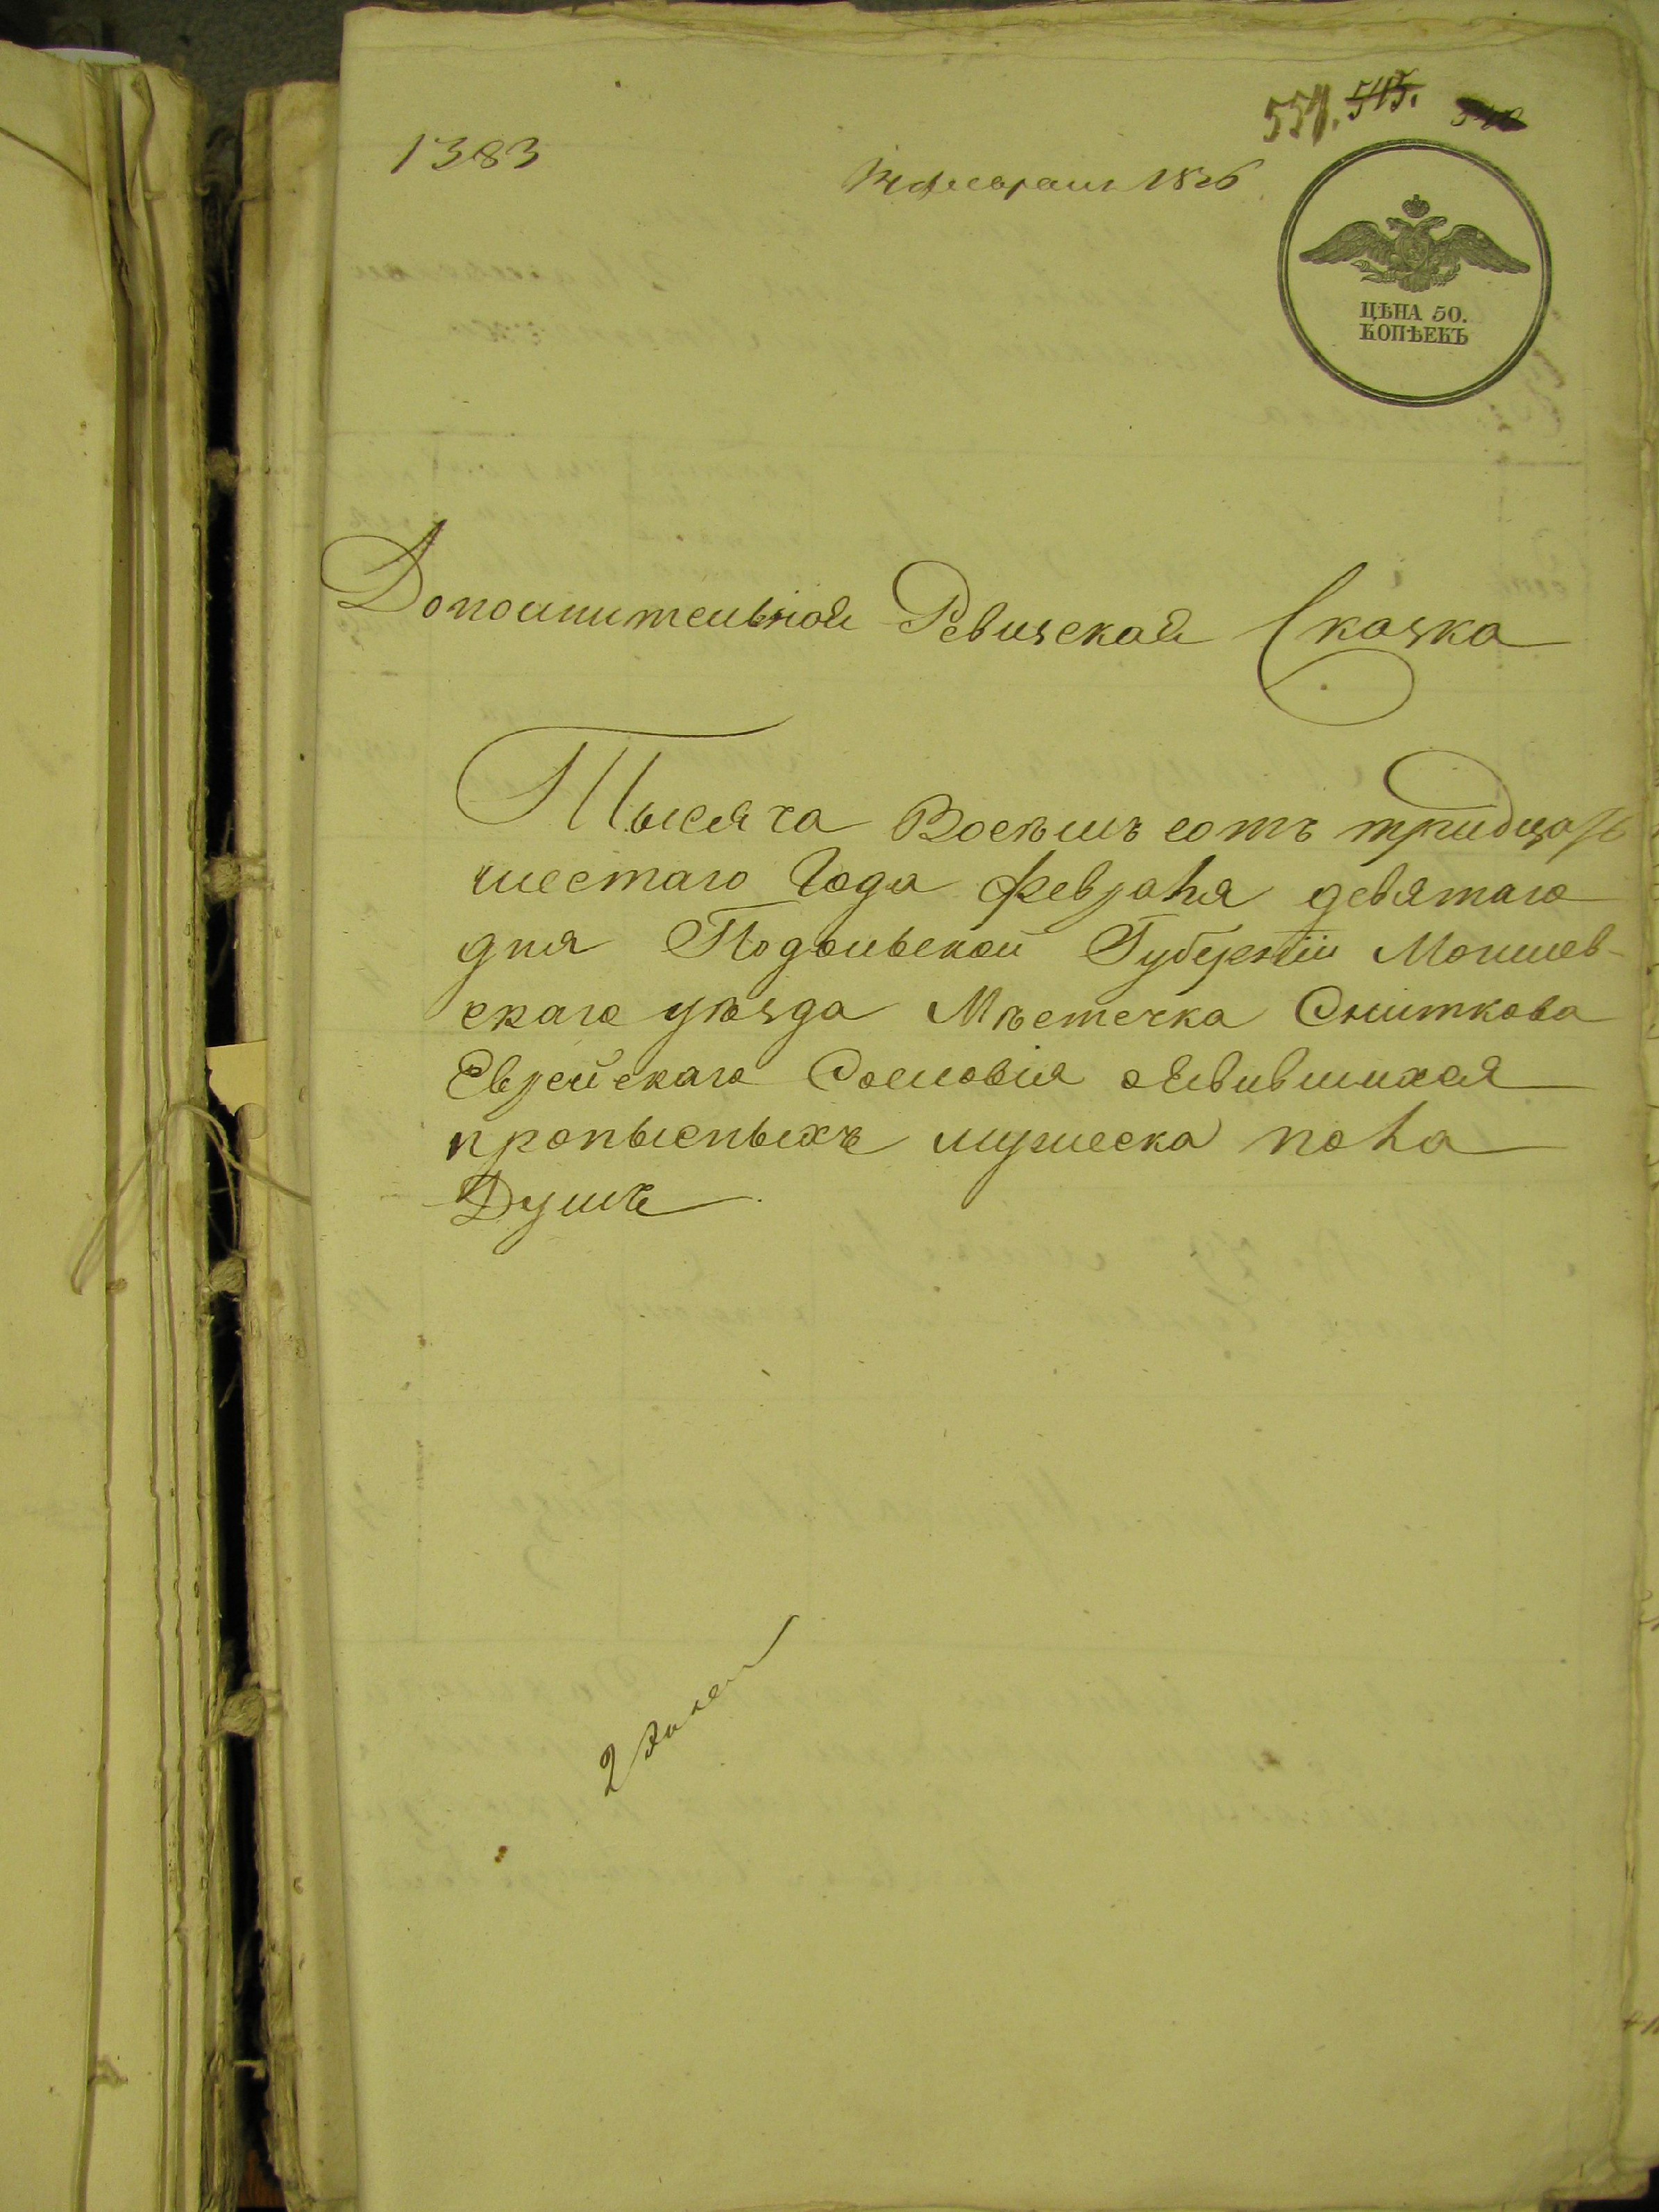 557. 545.
1383
14 февраля 1836
ЦѢНА 50.
КОПѢЕКЪ
Дополнительной Ревизской Сказка
Тысяча Восѣмъ сотъ тридцать
шестаго Года февраля девятаго
дня Подольской Губерніи Могилев-
скаго уѣзда Мѣстечка Сниткова
Еврейскаго Сословія оявившихся
прописныхъ мужеска пола
Душъ
2